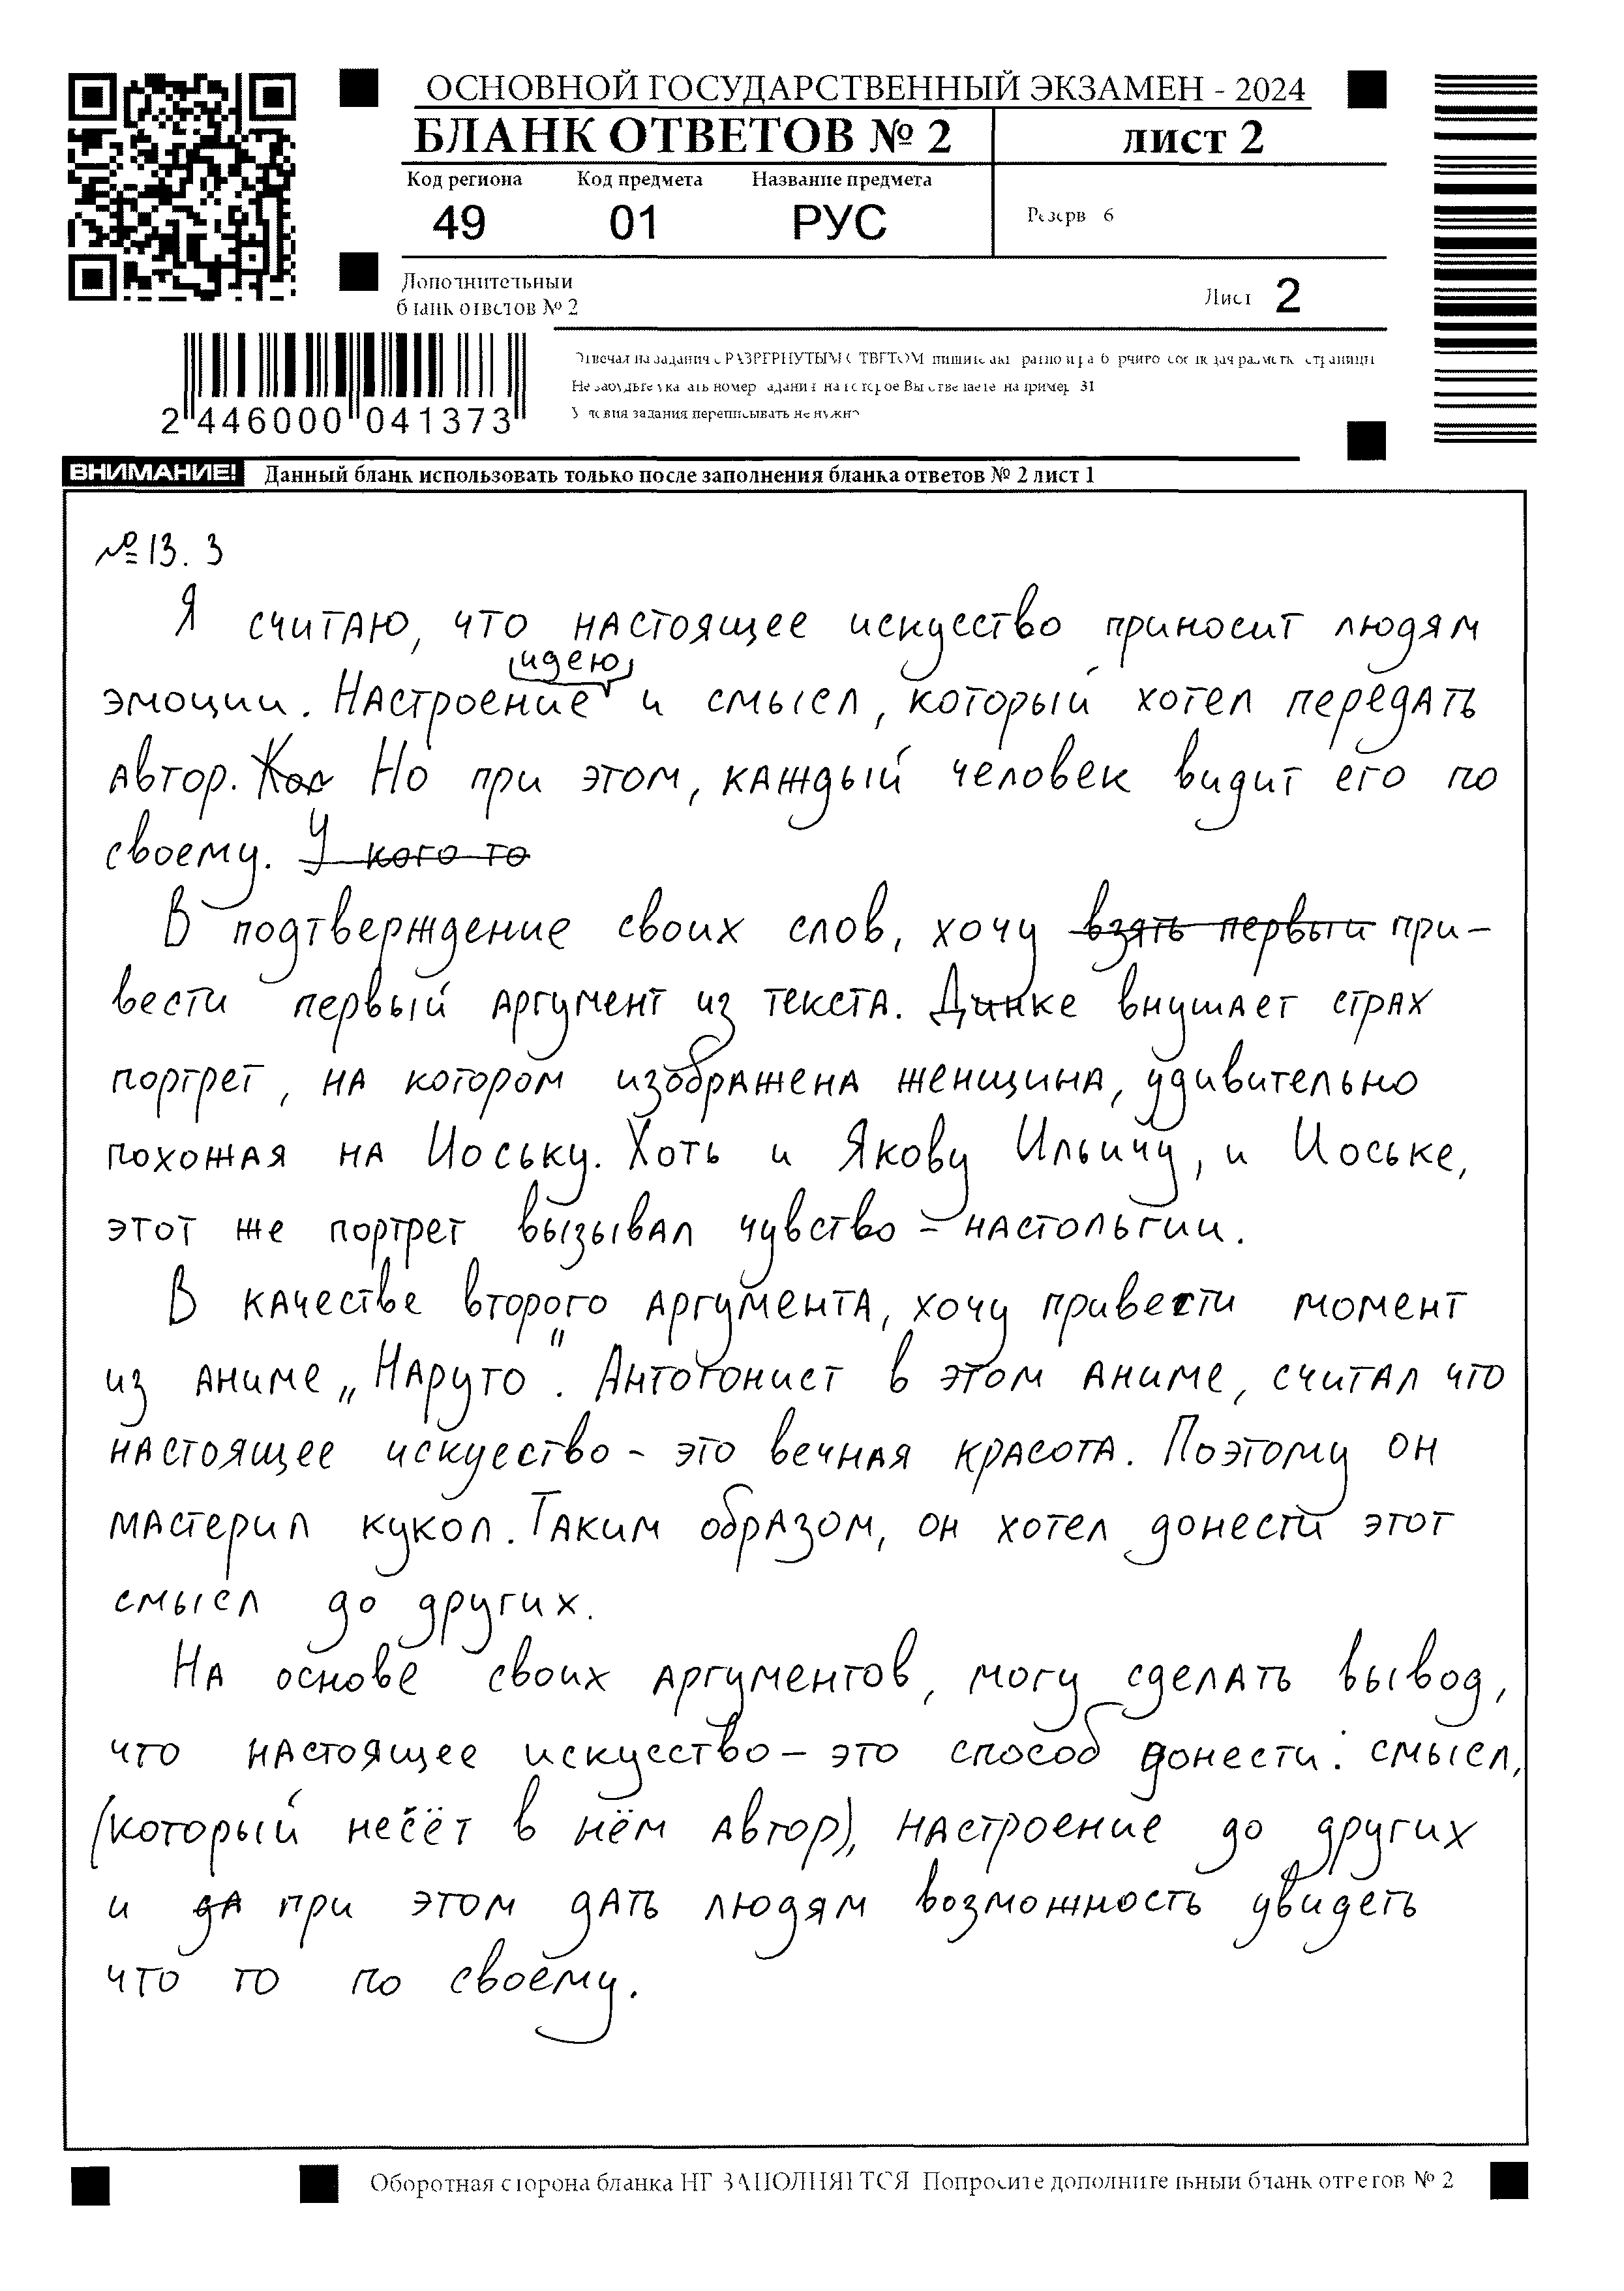 ОСНОВНОЙ ГОСУДАРСТВЕННЫЙ ЭКЗАМЕН - 2024
БЛАНК ОТВЕТОВ № 2 лист 2
Код региона Код предмета Название предмета
49 01 РУС
Резерв 6
Дополнительный
бланк ответов № 2
Лист 2
Отвечая на задания с РАЗВЕРНУТЫМ ОТВЕТОМ, пишите аккуратно и разборчиво, соблюдая разметку страницы
Не забудьте указать номер задания, на которое Вы отвечаете, например, 31
Условия задания переписывать не нужно
2 446000 041373
ВНИМАНИЕ! Данный бланк использовать только после заполнения бланка ответов № 2 лист 1
№ 13. 3
Я считаю, что настоящее искусство приносит людям
идею
эмоции. Настроение и смысл, который хотел передать
автор. Но при этом, каждый человек видит его по
своему. У кого то
В подтверждение своих слов, хочу взять первый при-
вести первый аргумент из текста. Динке внушает страх
портрет, на котором изображена женщина, удивительно
похожая на Иоську. Хоть и Якову Ильичу, и Иоське,
этот же портрет вызывал чувство – настольгии.
В качестве второго аргумента, хочу привести момент
из аниме „Наруто". Антогонист в этом аниме, считал что
настоящее искусство - это вечная красота. Поэтому он
мастерил кукол. Таким образом, он хотел донести этот
смысл до других.
На основе своих аргументов, могу сделать вывод,
что настоящее искусство – это способ донести: смысл,
(который несёт в нём автор), настроение до других
и да при этом дать людям возможность увидеть
что то по своему.
Оборотная сторона бланка НЕ ЗАПОЛНЯЕТСЯ Попросите дополнительный бланк ответов № 2